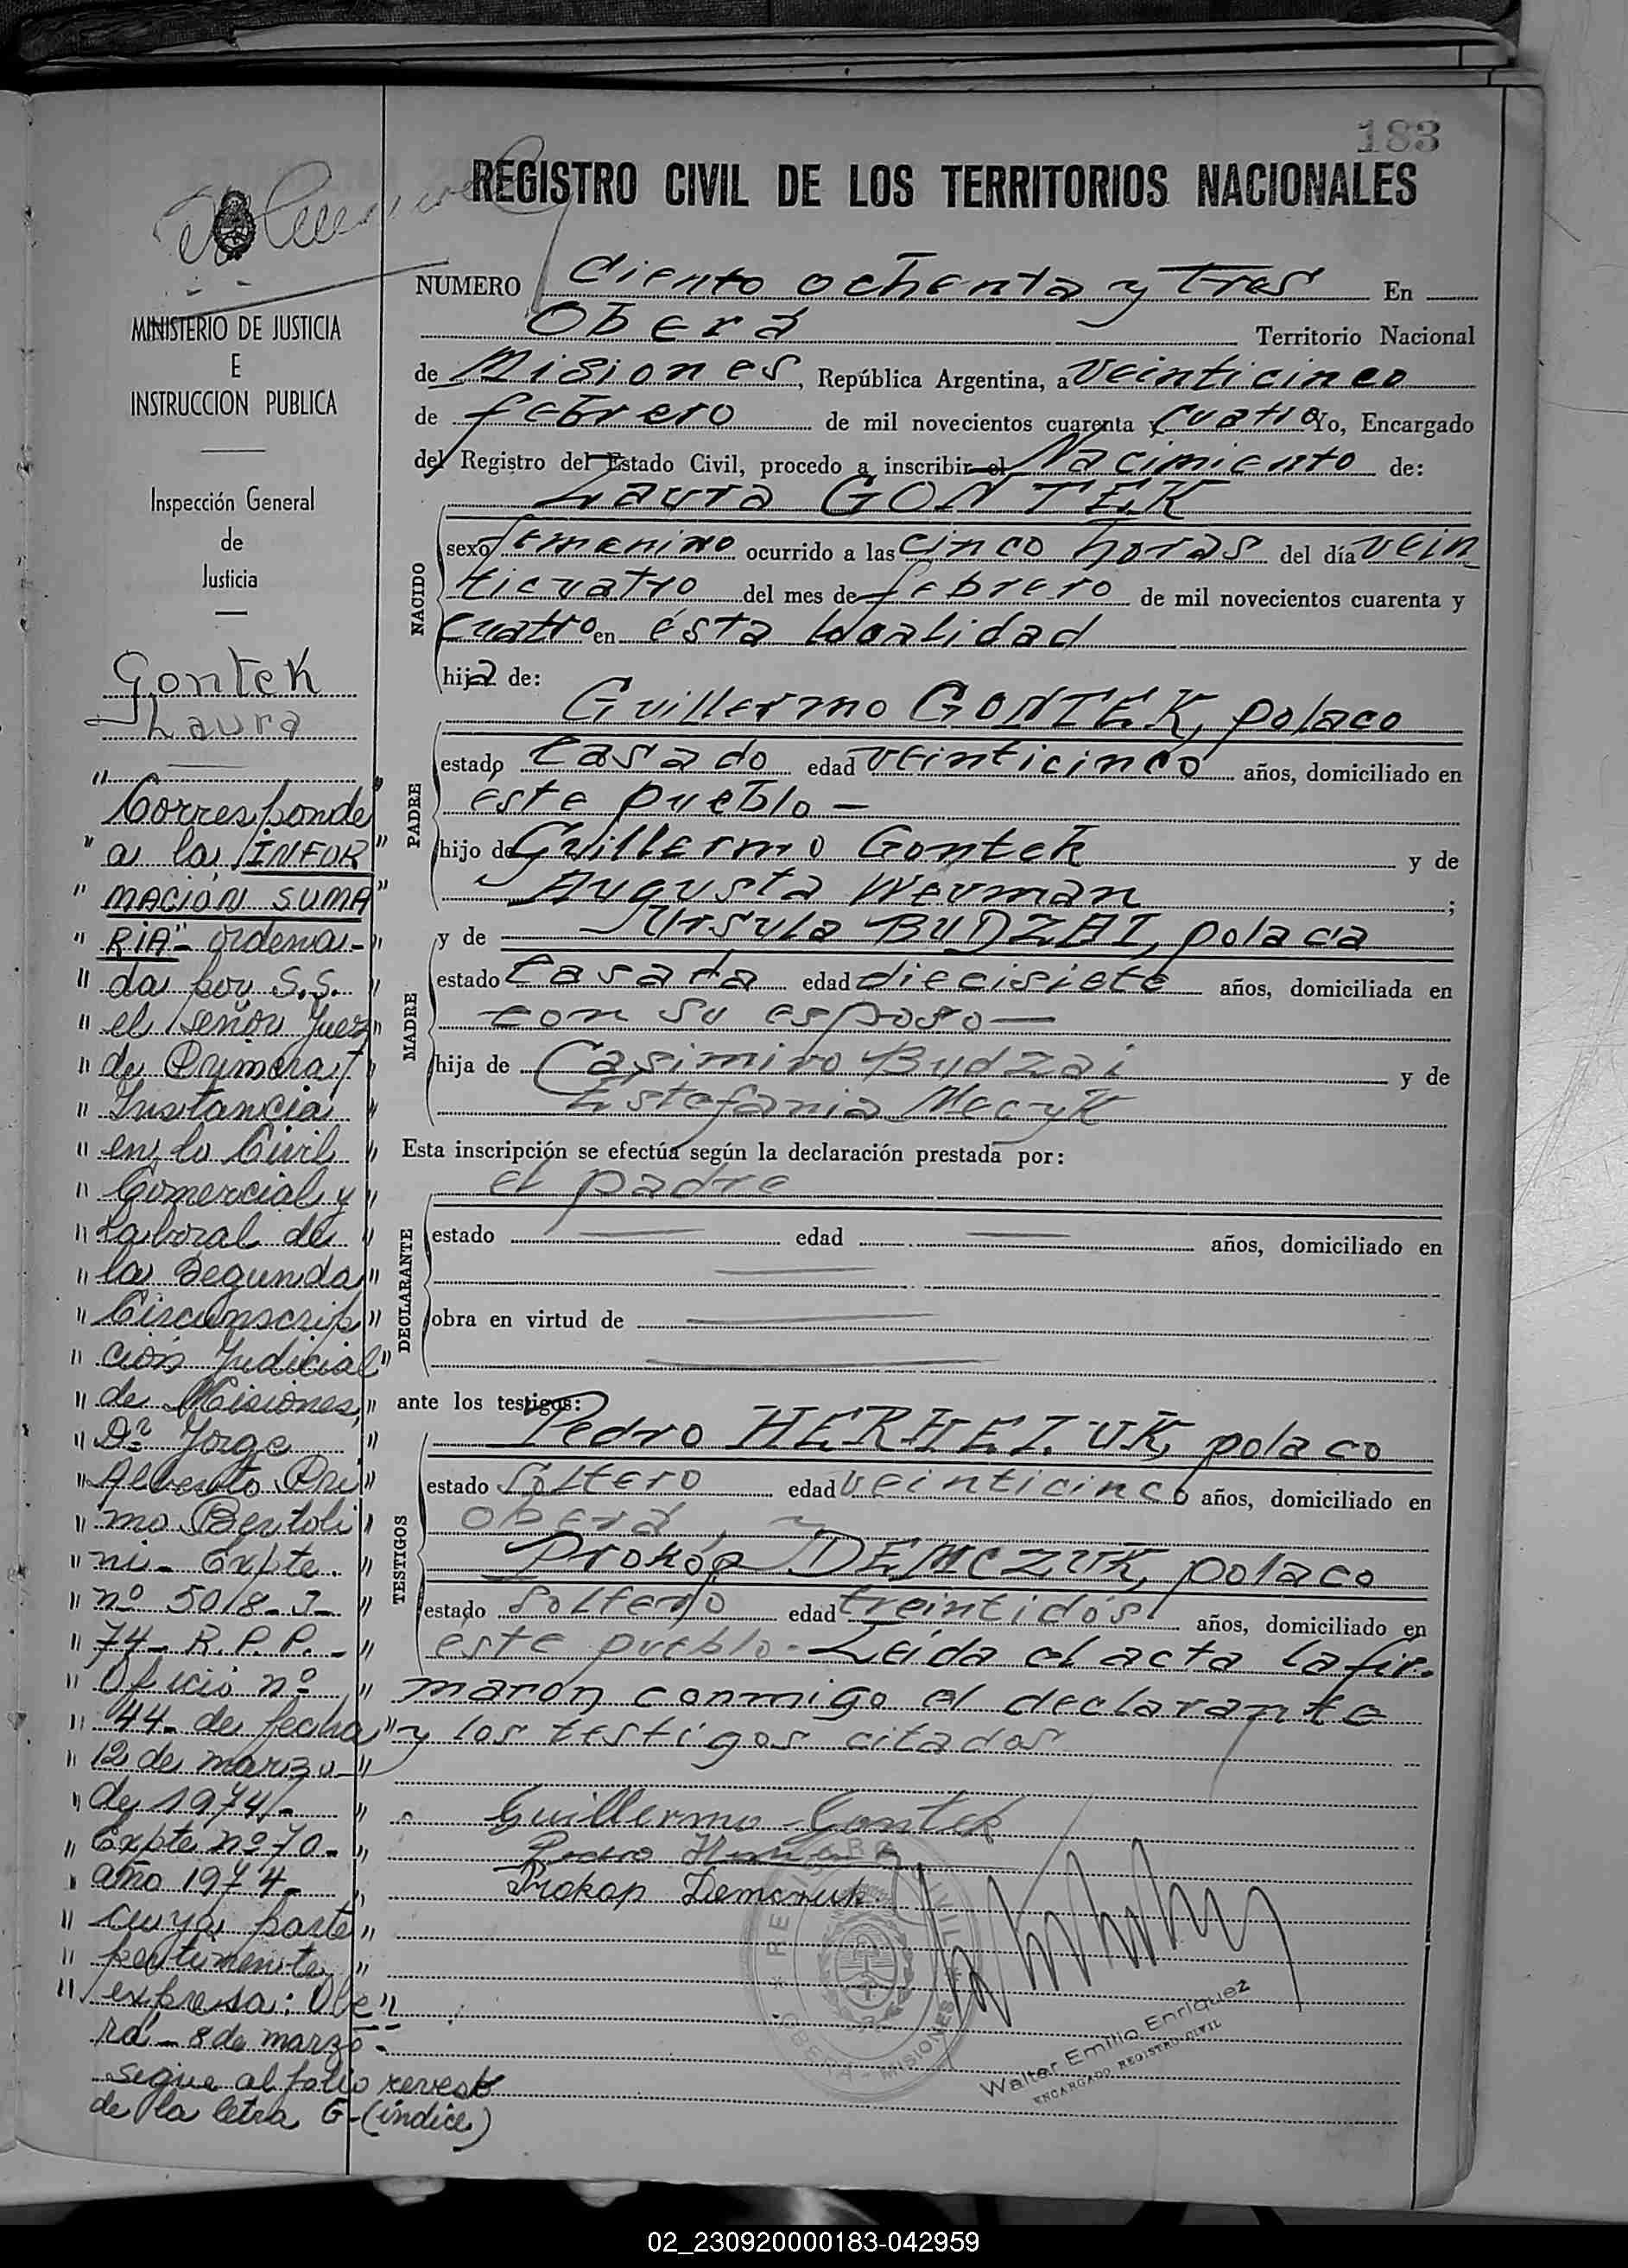 183
REGISTRO CIVIL DE LOS TERRITORIOS NACIONALES
MINISTERIO DE JUSTICIA
E
INSTRUCCION PUBLICA
Inspección General
de
Justicia
Gontek
Laura
" "
Corresponde
" a la "INFOR "
" MACIÓN SUMA "
" RIA"- ordena- "
" da por S.S. "
" el señor Juez "
" de Primera "
" Instancia "
" en lo Civil "
" Comercial y "
" Laboral de "
" la Segunda "
" Circunscrip "
" ción Judicial "
" de Misiones, "
" Dr. Jorge "
" Alberto Pri "
" mo Bertoli "
" ni- Expte. "
" nº 5018-J- "
" 74- R.P.P.- "
" Oficio nº "
" 44- de fecha "
" 12 de marzo- "
" de 1974- "
" Expte nº 70- "
" año 1974- "
" cuya parte "
" pertinente "
" expresa: Obe "
rá- 8 de marzo-
sigue al folio reverso
de la letra G-(índice)
NUMERO ciento ochenta y tres En
Oberá Territorio Nacional
de Misiones, República Argentina, a veinticinco
de febrero de mil novecientos cuarenta y cuatro Yo, Encargado
del Registro del Estado Civil, procedo a inscribir el Nacimiento de:
Laura GONTEK
NACIDO
sexo femenino ocurrido a las cinco horas del día vein
ticuatro del mes de febrero de mil novecientos cuarenta y
cuatro en ésta localidad
hija de:
Guillermo GONTEK, polaco
PADRE
estado casado edad veinticinco años, domiciliado en
este pueblo-
hijo de Guillermo Gontek y de
Augusta Weuman ;
y de Ursula BUDZAI, polaca
MADRE
estado casada edad diecisiete años, domiciliada en
con su esposo-
hija de Casimiro Budzai y de
Estefania Mecyk
Esta inscripción se efectúa según la declaración prestada por:
el padre
DECLARANTE
estado edad años, domiciliado en
obra en virtud de
ante los testigos:
Pedro HERHELUK, polaco
TESTIGOS
estado soltero edad veinticinco años, domiciliado en
Oberá, y
Prokóp DEMCZUK, polaco
estado soltero edad treintidós años, domiciliado en
éste pueblo- Leida el acta la fir-
maron conmigo el declarante
y los testigos citados
Guillermo Gontek
Pedro
Prokop Demczuk
REGISTRO CIVIL
OBERÁ - MISIONES
Walter Emilio Enriquez
ENCARGADO REGISTRO CIVIL
02_230920000183-042959